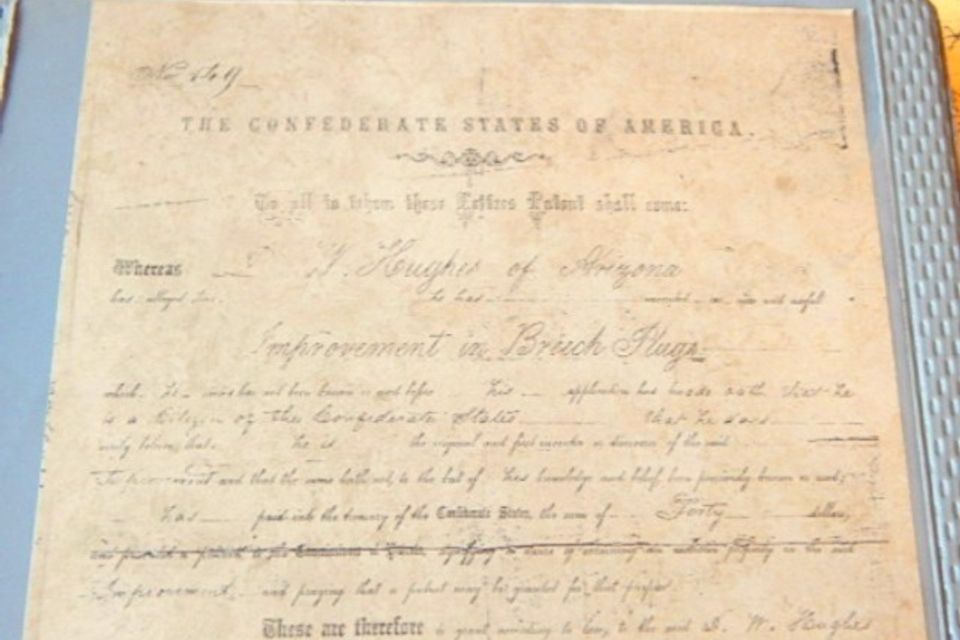 THE CONFEDERATE STATES OF AMERICA.
To all to whom these Letters Patent shall come:
Whereas W. Hughes of Arizona
has alleged that he has
Improvement in Breech Plugs
which he has not been known or used before his application has made oath that he
is a Citizen of the Confederate States that he does
verily believe that he is the original and first inventor or discoverer of the said
Improvement and that the same hath not, to the best of his knowledge and belief, been previously known or used;
has paid into the treasury of the Confederate States, the sum of Forty dollars,
Improvement and praying that a patent may be granted for that purpose
These are therefore to grant according to law, to the said D. W. Hughes